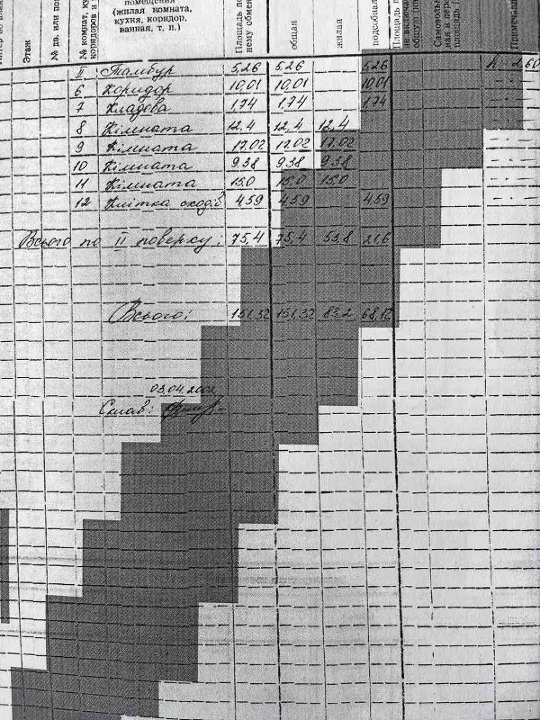 Этаж
№ кв. или пом
№ комнат, ку
коридоров и
помещения
(жилая комната,
кухня, коридор,
ванная, т. п.)
Площадь по
нему обмен
общая
жилая
подсобная
II Тамбур 5,26 5,26 5,26 h - 2,60
6 Коридор 10,01 10,01 10,01
7 Кладова 1,74 1,74 1,74
8 Кімната 12,4 12,4 12,4
9 Кімната 17,02 17,02 17,02
10 Кімната 9,38 9,38 9,38
11 Кімната 15,0 15,0 15,0
12 Клітка сход. 4,59 4,59 4,59
Всього по II поверсу: 75,4 75,4 53,8 21,6
Всього: 151,32 151,32 83,2 68,12
Склав: